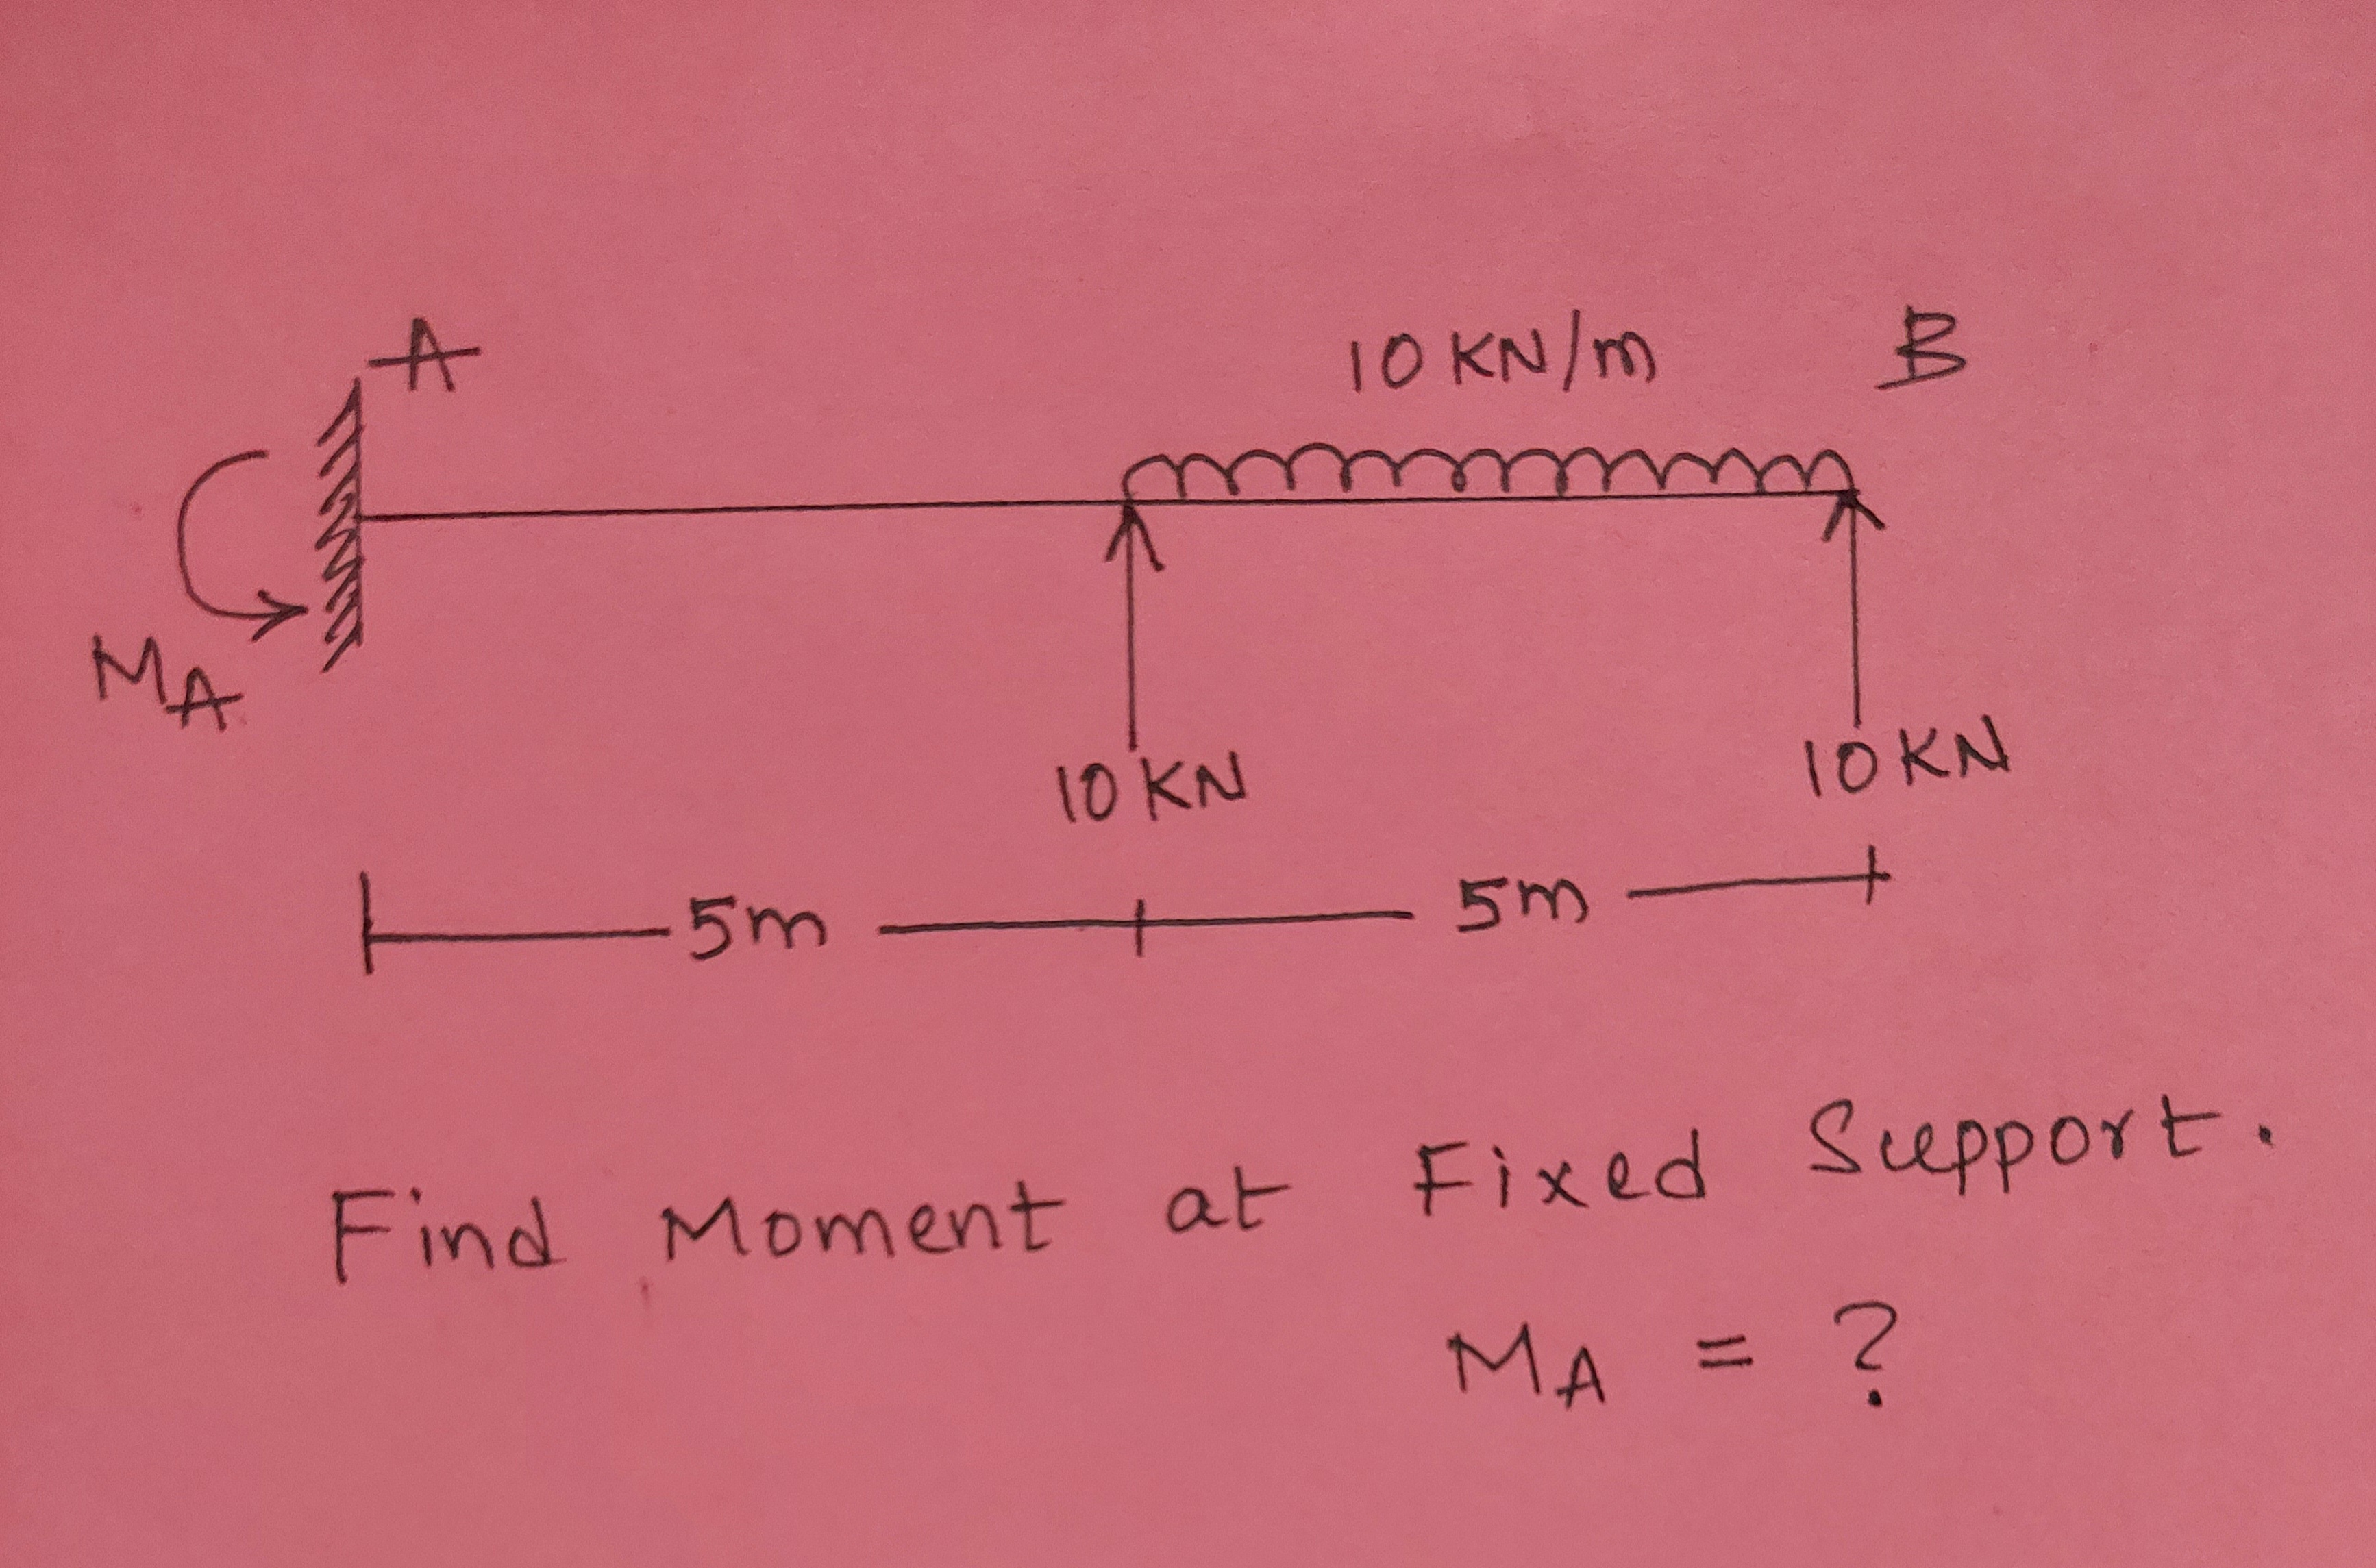 A
10 KN/m
B
MA
10 KN
10 KN
5m
5m
Find Moment at Fixed Support.
MA = ?